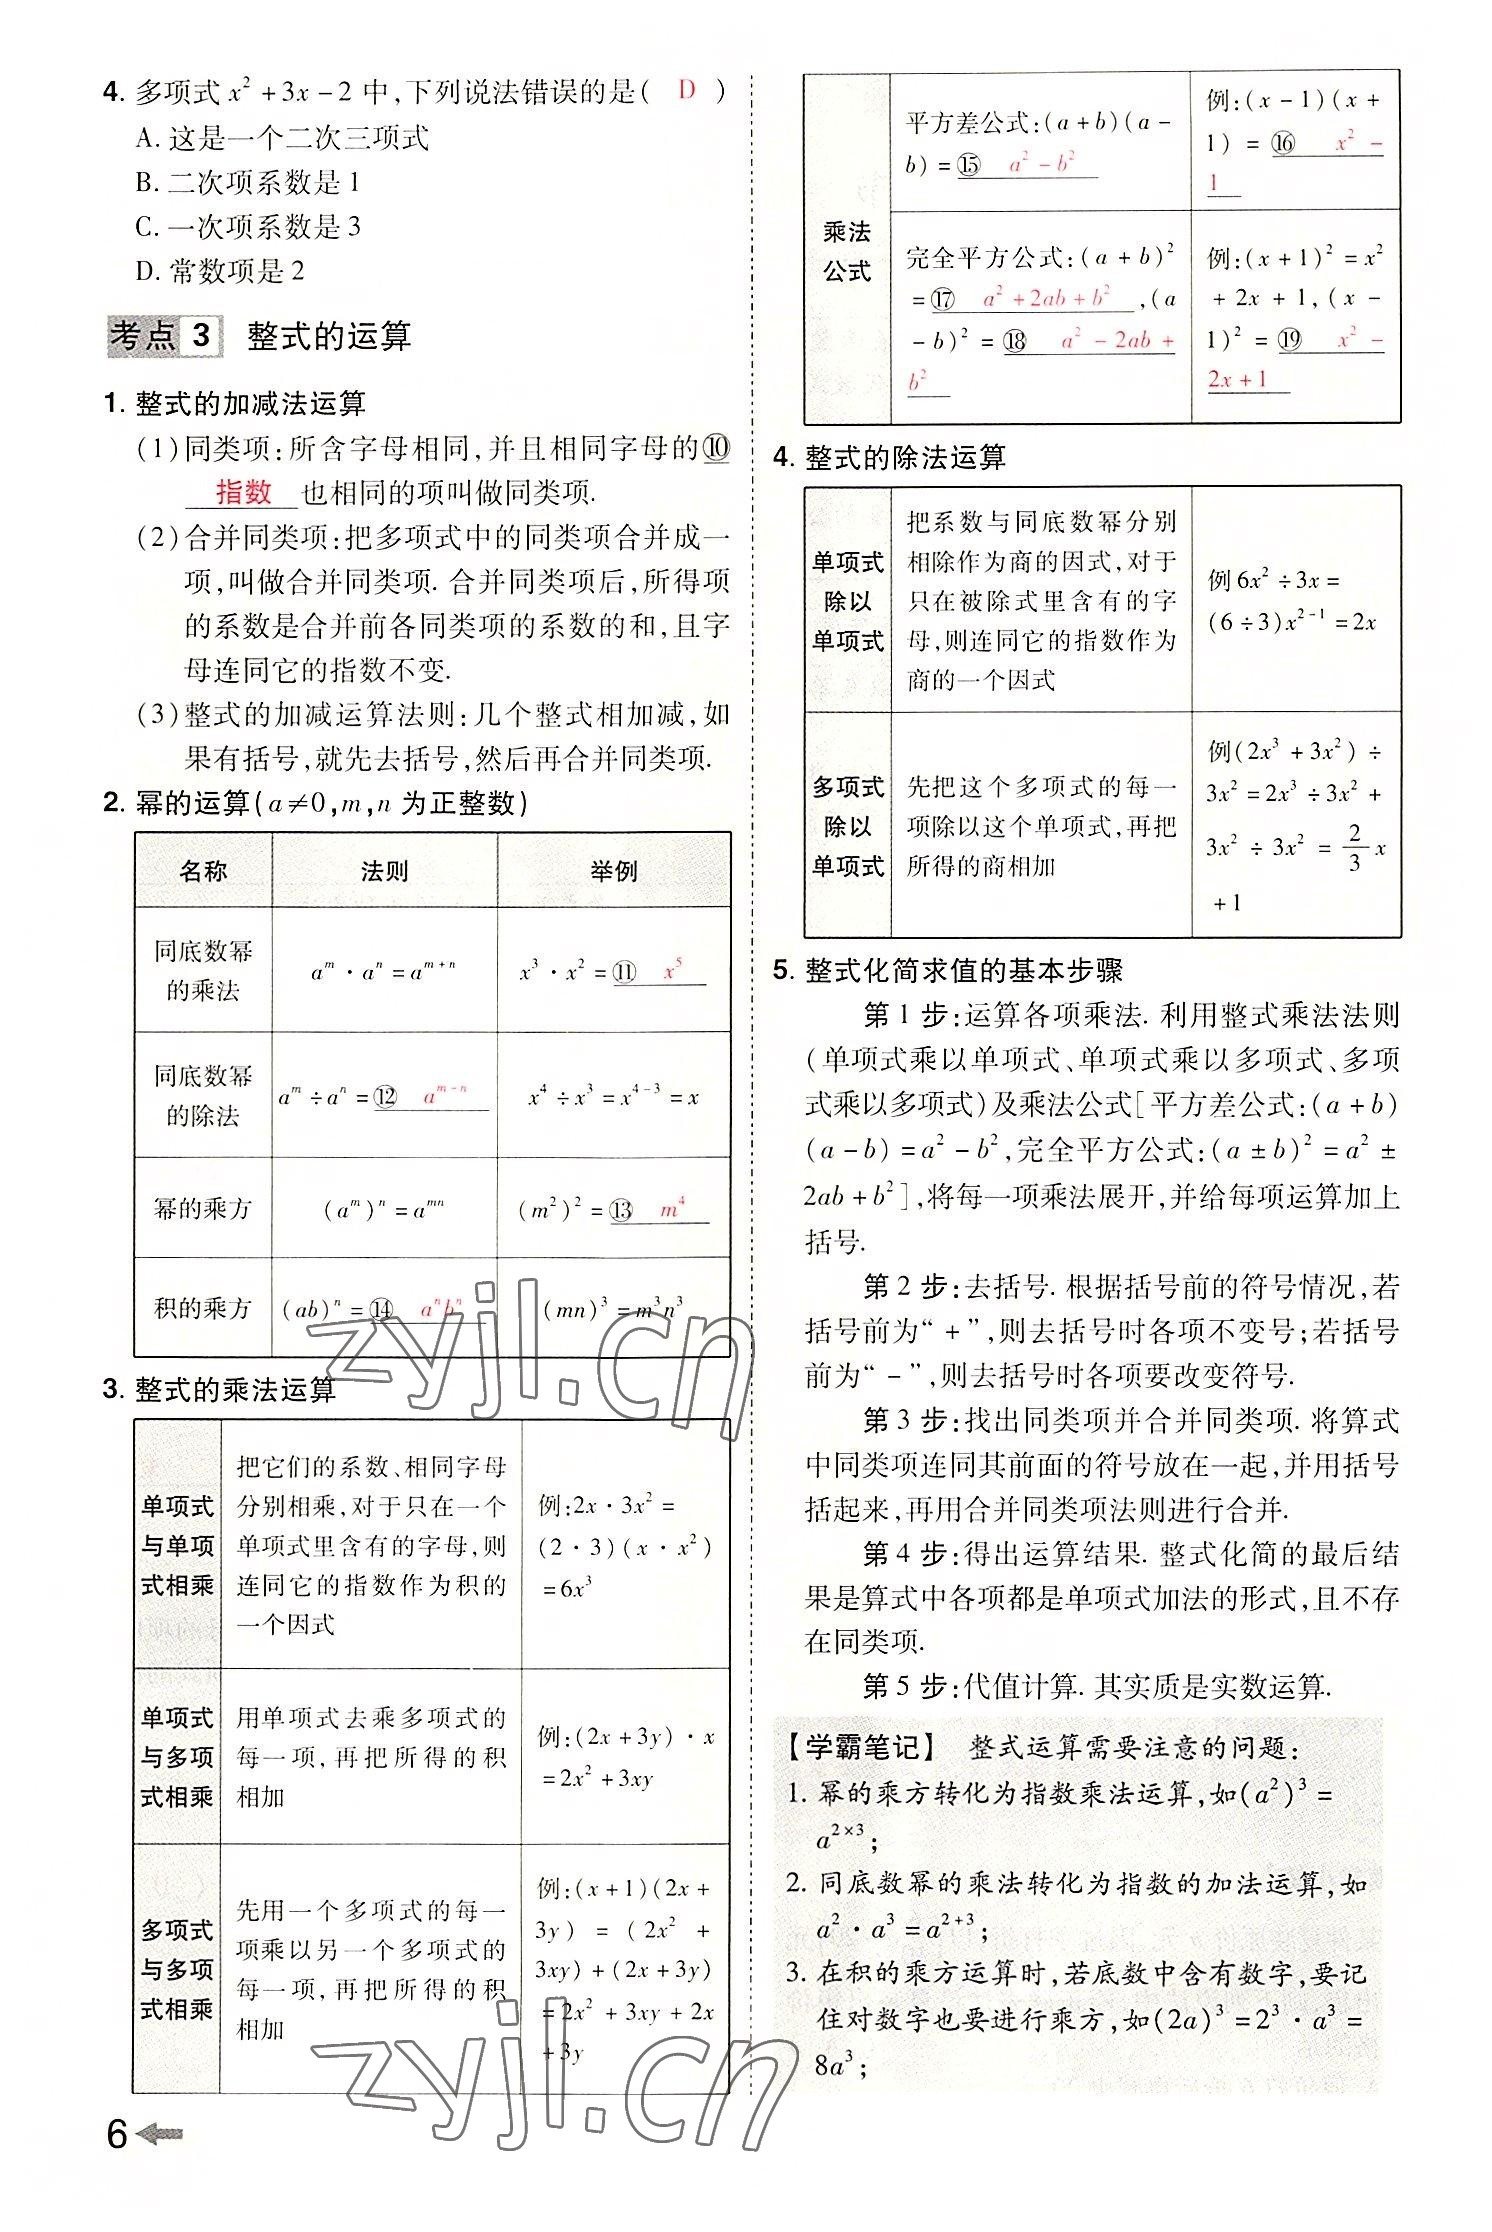 4. 多项式 x² + 3x - 2 中,下列说法错误的是( D )
A. 这是一个二次三项式
B. 二次项系数是 1
C. 一次项系数是 3
D. 常数项是 2
考点 3 整式的运算
1. 整式的加减法运算
(1)同类项:所含字母相同,并且相同字母的⑩
指数 也相同的项叫做同类项.
(2)合并同类项:把多项式中的同类项合并成一
项,叫做合并同类项. 合并同类项后,所得项
的系数是合并前各同类项的系数的和,且字
母连同它的指数不变.
(3)整式的加减运算法则:几个整式相加减,如
果有括号,就先去括号,然后再合并同类项.
2. 幂的运算(a≠0,m,n 为正整数)
名称 法则 举例
同底数幂
的乘法
aᵐ · aⁿ = aᵐ⁺ⁿ
x³ · x² = ⑪ x⁵
同底数幂
的除法
aᵐ ÷ aⁿ = ⑫ aᵐ⁻ⁿ
x⁴ ÷ x³ = x⁴⁻³ = x
幂的乘方 (aᵐ)ⁿ = aᵐⁿ (m²)² = ⑬ m⁴
积的乘方 (ab)ⁿ = ⑭ aⁿbⁿ (mn)³ = m³n³
3. 整式的乘法运算
单项式
与单项
式相乘
把它们的系数、相同字母
分别相乘,对于只在一个
单项式里含有的字母,则
连同它的指数作为积的
一个因式
例:2x · 3x² =
(2 · 3)(x · x²)
= 6x³
单项式
与多项
式相乘
用单项式去乘多项式的
每一项,再把所得的积
相加
例:(2x + 3y) · x
= 2x² + 3xy
多项式
与多项
式相乘
先用一个多项式的每一
项乘以另一个多项式的
每一项,再把所得的积
相加
例:(x + 1)(2x +
3y) = (2x² +
3xy) + (2x + 3y)
= 2x² + 3xy + 2x
+ 3y
6
乘法
公式
平方差公式:(a + b)(a -
b) = ⑮ a² - b²
例:(x - 1)(x +
1) = ⑯ x² -
1
完全平方公式:(a + b)²
= ⑰ a² + 2ab + b² ,(a
- b)² = ⑱ a² - 2ab +
b²
例:(x + 1)² = x²
+ 2x + 1,(x -
1)² = ⑲ x² -
2x + 1
4. 整式的除法运算
单项式
除以
单项式
把系数与同底数幂分别
相除作为商的因式,对于
只在被除式里含有的字
母,则连同它的指数作为
商的一个因式
例 6x² ÷ 3x =
(6 ÷ 3)x²⁻¹ = 2x
多项式
除以
单项式
先把这个多项式的每一
项除以这个单项式,再把
所得的商相加
例(2x³ + 3x²) ÷
3x² = 2x³ ÷ 3x² +
3x² ÷ 3x² = 2/3 x
+ 1
5. 整式化简求值的基本步骤
第 1 步:运算各项乘法. 利用整式乘法法则
(单项式乘以单项式、单项式乘以多项式、多项
式乘以多项式)及乘法公式[平方差公式:(a + b)
(a - b) = a² - b²,完全平方公式:(a ± b)² = a² ±
2ab + b²],将每一项乘法展开,并给每项运算加上
括号.
第 2 步:去括号. 根据括号前的符号情况,若
括号前为“ + ”,则去括号时各项不变号;若括号
前为“ - ”,则去括号时各项要改变符号.
第 3 步:找出同类项并合并同类项. 将算式
中同类项连同其前面的符号放在一起,并用括号
括起来,再用合并同类项法则进行合并.
第 4 步:得出运算结果. 整式化简的最后结
果是算式中各项都是单项式加法的形式,且不存
在同类项.
第 5 步:代值计算. 其实质是实数运算.
【学霸笔记】 整式运算需要注意的问题:
1. 幂的乘方转化为指数乘法运算,如(a²)³ =
a²ˣ³;
2. 同底数幂的乘法转化为指数的加法运算,如
a² · a³ = a²⁺³;
3. 在积的乘方运算时,若底数中含有数字,要记
住对数字也要进行乘方,如(2a)³ = 2³ · a³ =
8a³;
zyjl.cn
zyjl.cn